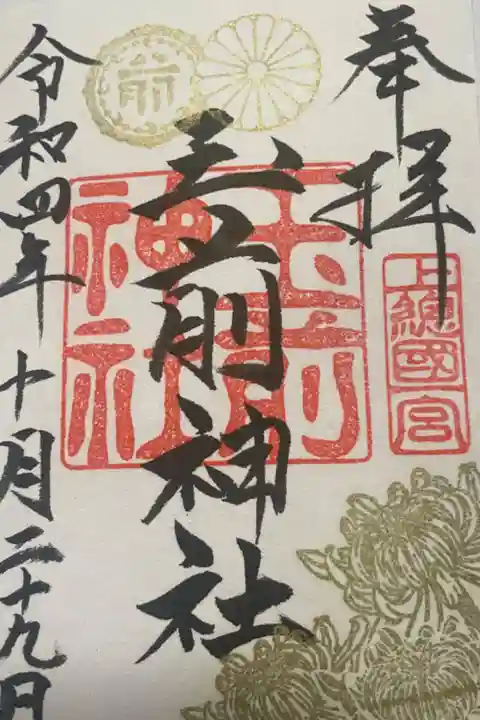 奉拝
上總國一宮
玉前神社
玉前
神社
前
令和四年十月二十九日